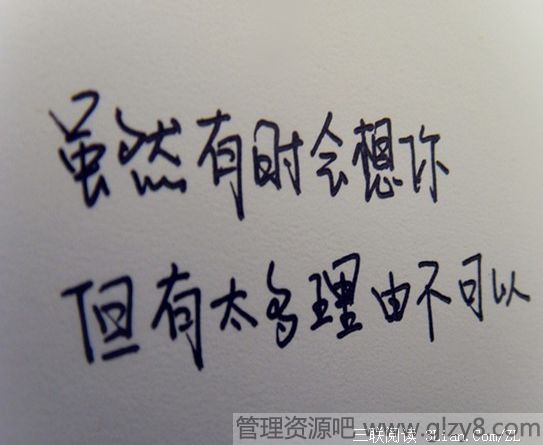 虽然有时会想你
但有太多理由不可以
三联阅读 3Lian.Com/ZL
管理资源吧 www.glzy8.com